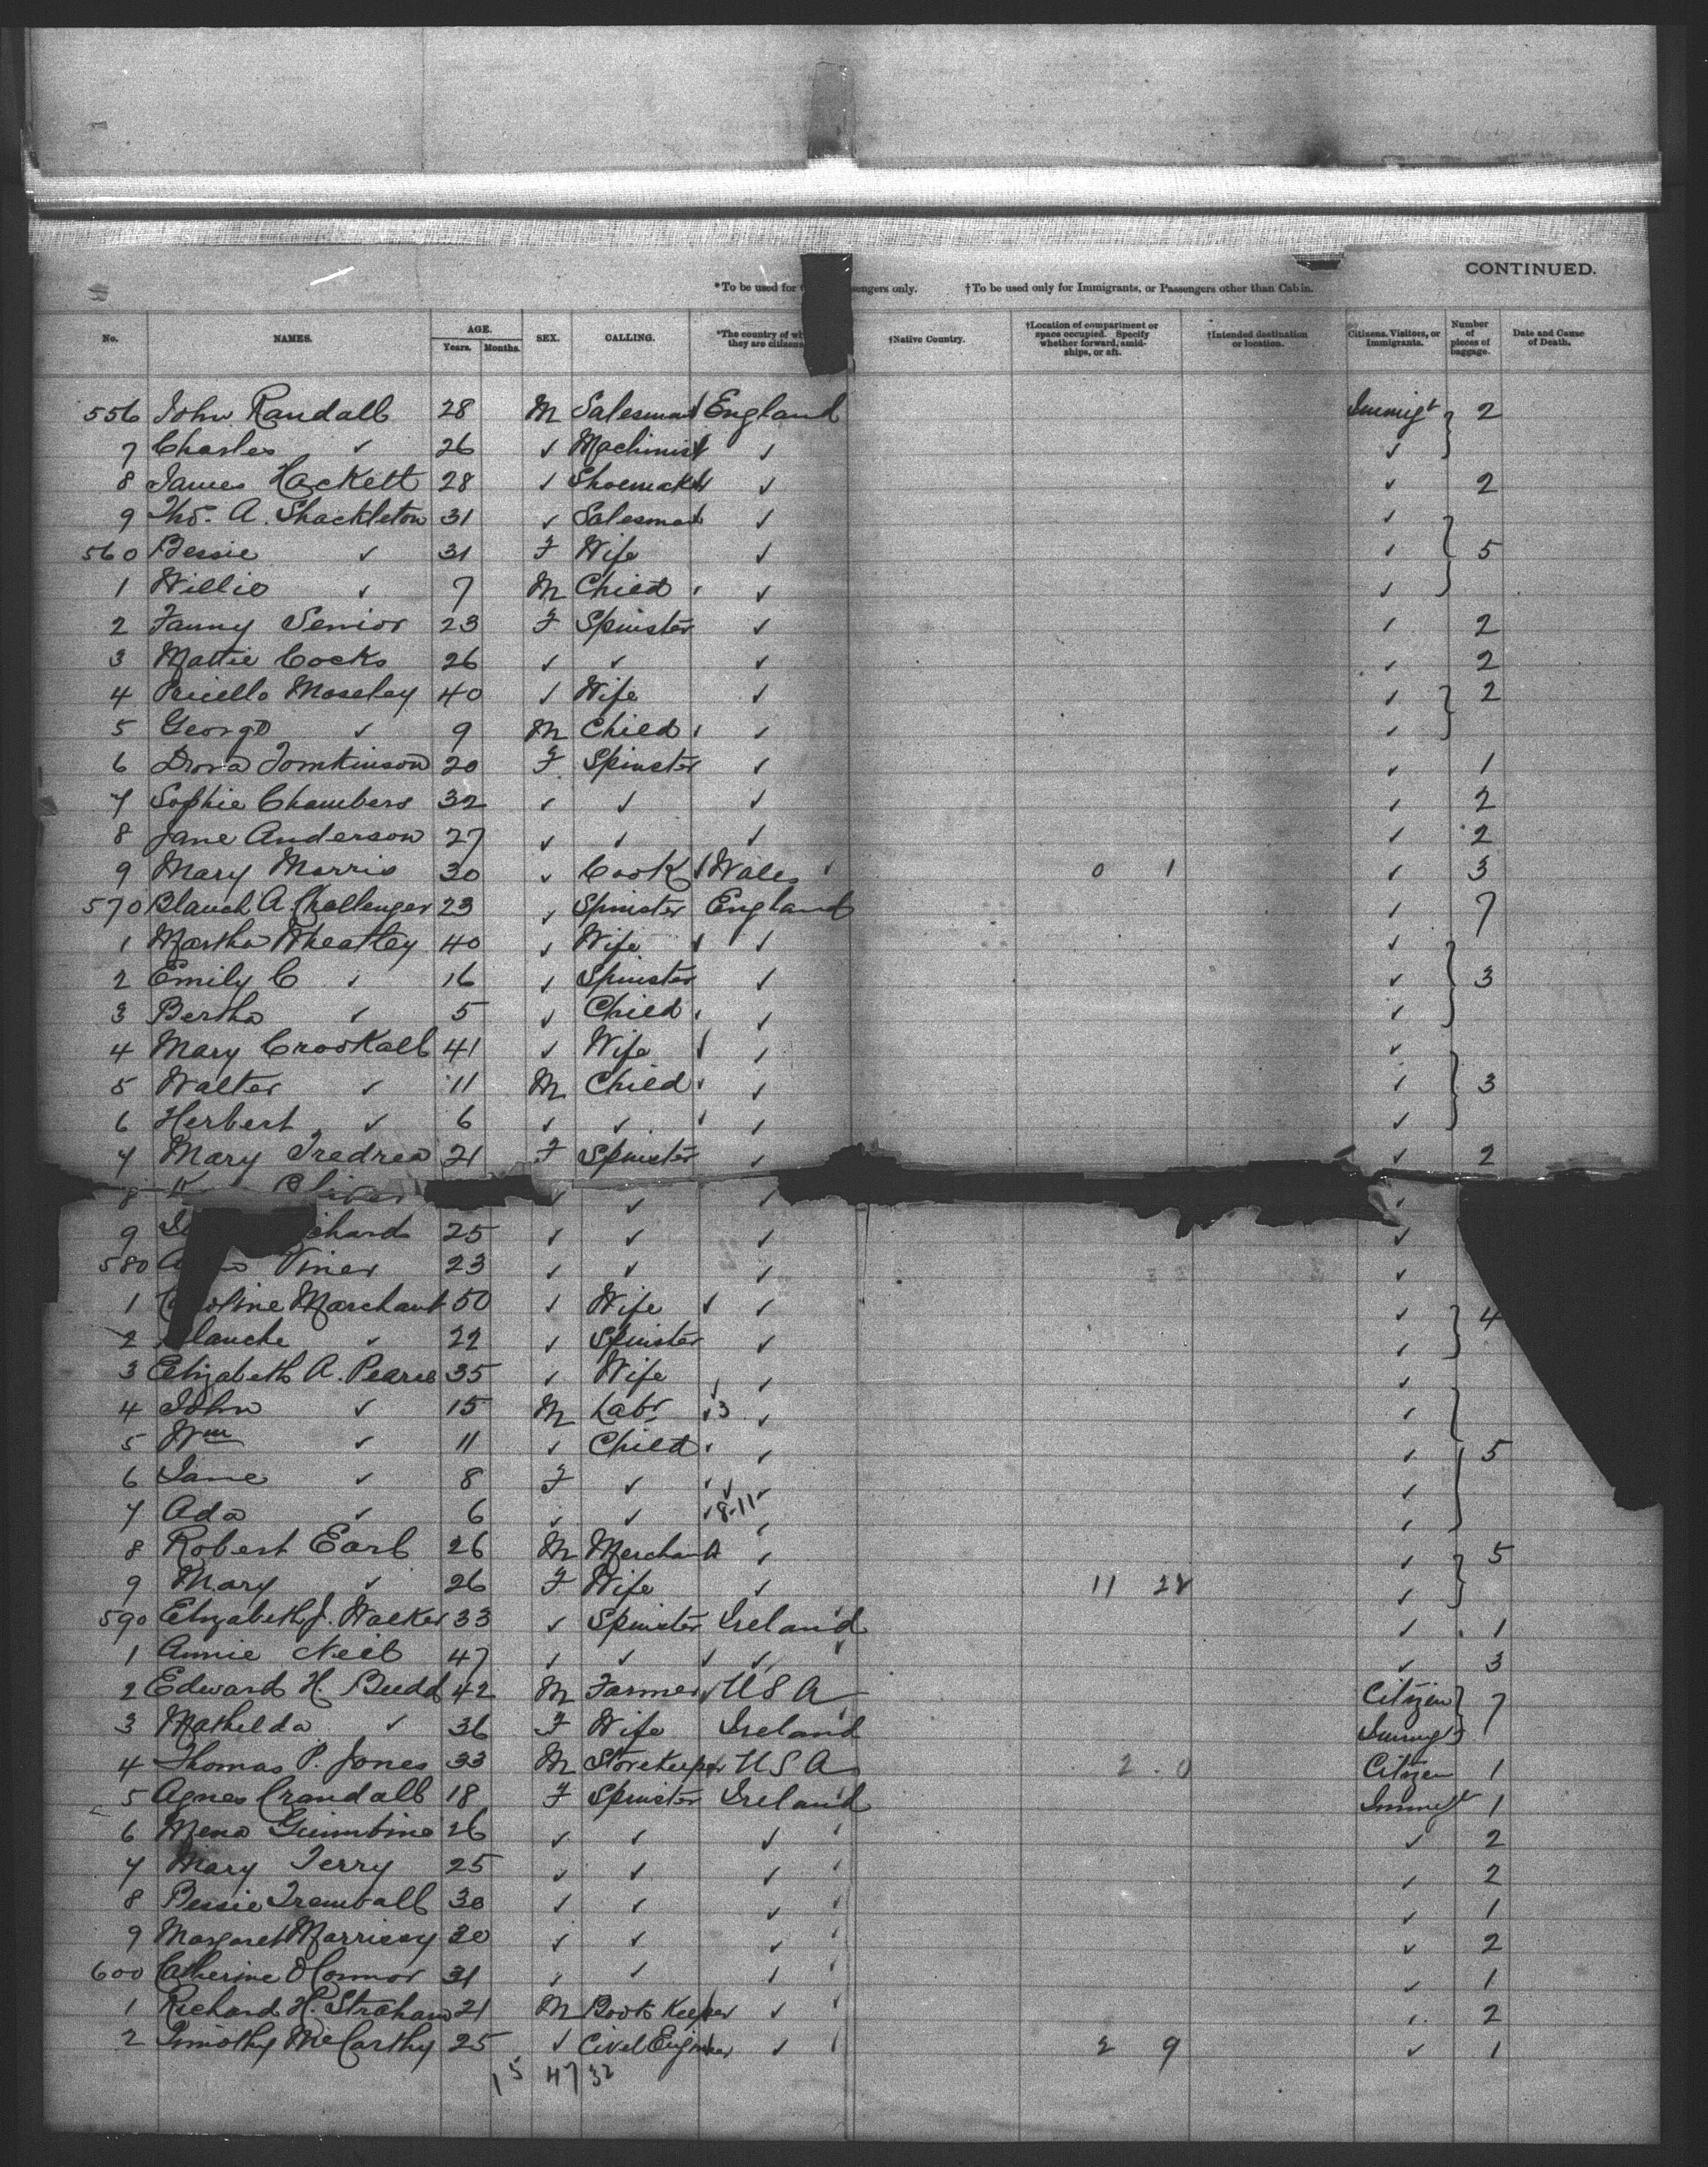 CONTINUED.
*To be used for engers only. †To be used only for Immigrants, or Passengers other than Cabin.
No. NAMES. AGE. Years. Months. SEX. CALLING. *The country of wh they are citizens †Native Country. †Location of compartment or space occupied. Specify whether forward, amidships, or aft. †Intended destination or location. Citizens, Visitors, or Immigrants. Number of pieces of baggage. Date and Cause of Death.
556 John Randall 28 M Salesman England Immigt 2
7 Charles ✓ 26 ✓ Machinist ✓ ✓
8 James Hackett 28 ✓ Shoemaker ✓ ✓ 2
9 Thos. A. Shackleton 31 ✓ Salesman ✓ ✓
560 Bessie ✓ 31 F Wife ✓ ✓ 5
1 Willie ✓ 7 M Child ✓ ✓
2 Fanny Senior 23 F Spinster ✓ ✓ 2
3 Mattie Cocks 26 ✓ ✓ ✓ ✓ 2
4 Moseley 40 ✓ Wife ✓ ✓ 2
5 George ✓ 9 M Child ✓ ✓
6 Dora Tomkinson 20 F Spinster ✓ ✓ 1
7 Sophie Chambers 32 ✓ ✓ ✓ ✓ 2
8 Jane Anderson 27 ✓ ✓ ✓ ✓ 2
9 Mary Morris 30 ✓ Cook Wales 0 1 ✓ 3
570 Blanch A. Challenger 23 ✓ Spinster England ✓ 7
1 Martha Wheatley 40 ✓ Wife ✓ ✓ ✓
2 Emily C ✓ 16 ✓ Spinster ✓ ✓ 3
3 Bertha ✓ 5 ✓ Child ✓ ✓
4 Mary Crookall 41 ✓ Wife ✓ ✓
5 Walter ✓ 11 M Child ✓ ✓ 3
6 Herbert ✓ 6 ✓ ✓ ✓ ✓
7 Mary Tredrea 21 F Spinster ✓ ✓ 2
8 Oliver ✓ ✓ ✓ ✓
9 chard 25 ✓ ✓ ✓ ✓
580 A Viner 23 ✓ ✓ ✓ ✓
1 Caroline Marchant 50 ✓ Wife ✓ ✓ ✓ 4
2 Blanche ✓ 22 ✓ Spinster ✓ ✓
3 Elizabeth A. Pearce 35 ✓ Wife ✓ ✓
4 John ✓ 15 M Labr ✓ 3 ✓ ✓
5 Wm ✓ 11 ✓ Child ✓ ✓ 5
6 Jane ✓ 8 F ✓ ✓ ✓
7 Ada ✓ 6 ✓ ✓ 8-11 ✓ ✓
8 Robert Earl 26 M Merchant ✓ ✓ 5
9 Mary ✓ 26 F Wife ✓ 11 28 ✓
590 Elizabeth J. Walker 33 ✓ Spinster Ireland ✓ 1
1 Annie Neil 47 ✓ ✓ ✓ ✓ ✓ 3
2 Edward H. Budd 42 M Farmer U S A Citizen 7
3 Mathilda ✓ 36 F Wife Ireland Immigt
4 Thomas P. Jones 33 M Storekeeper U S A 2 0 Citizen 1
5 Agnes Crandall 18 F Spinster Ireland Immigt 1
6 Mena 26 ✓ ✓ ✓ ✓ 2
7 Mary Terry 25 ✓ ✓ ✓ ✓ 2
8 Bessie Tremball 30 ✓ ✓ ✓ ✓ 1
9 Margaret Morrissy 20 ✓ ✓ ✓ ✓ 2
600 Catherine O'Connor 31 ✓ ✓ ✓ ✓ 1
1 Richard H. Strahan 21 M Book Keeper ✓ ✓ 2
2 Timothy McCarthy 25 ✓ Civil Engineer ✓ 2 9 ✓ 1
15 47 32